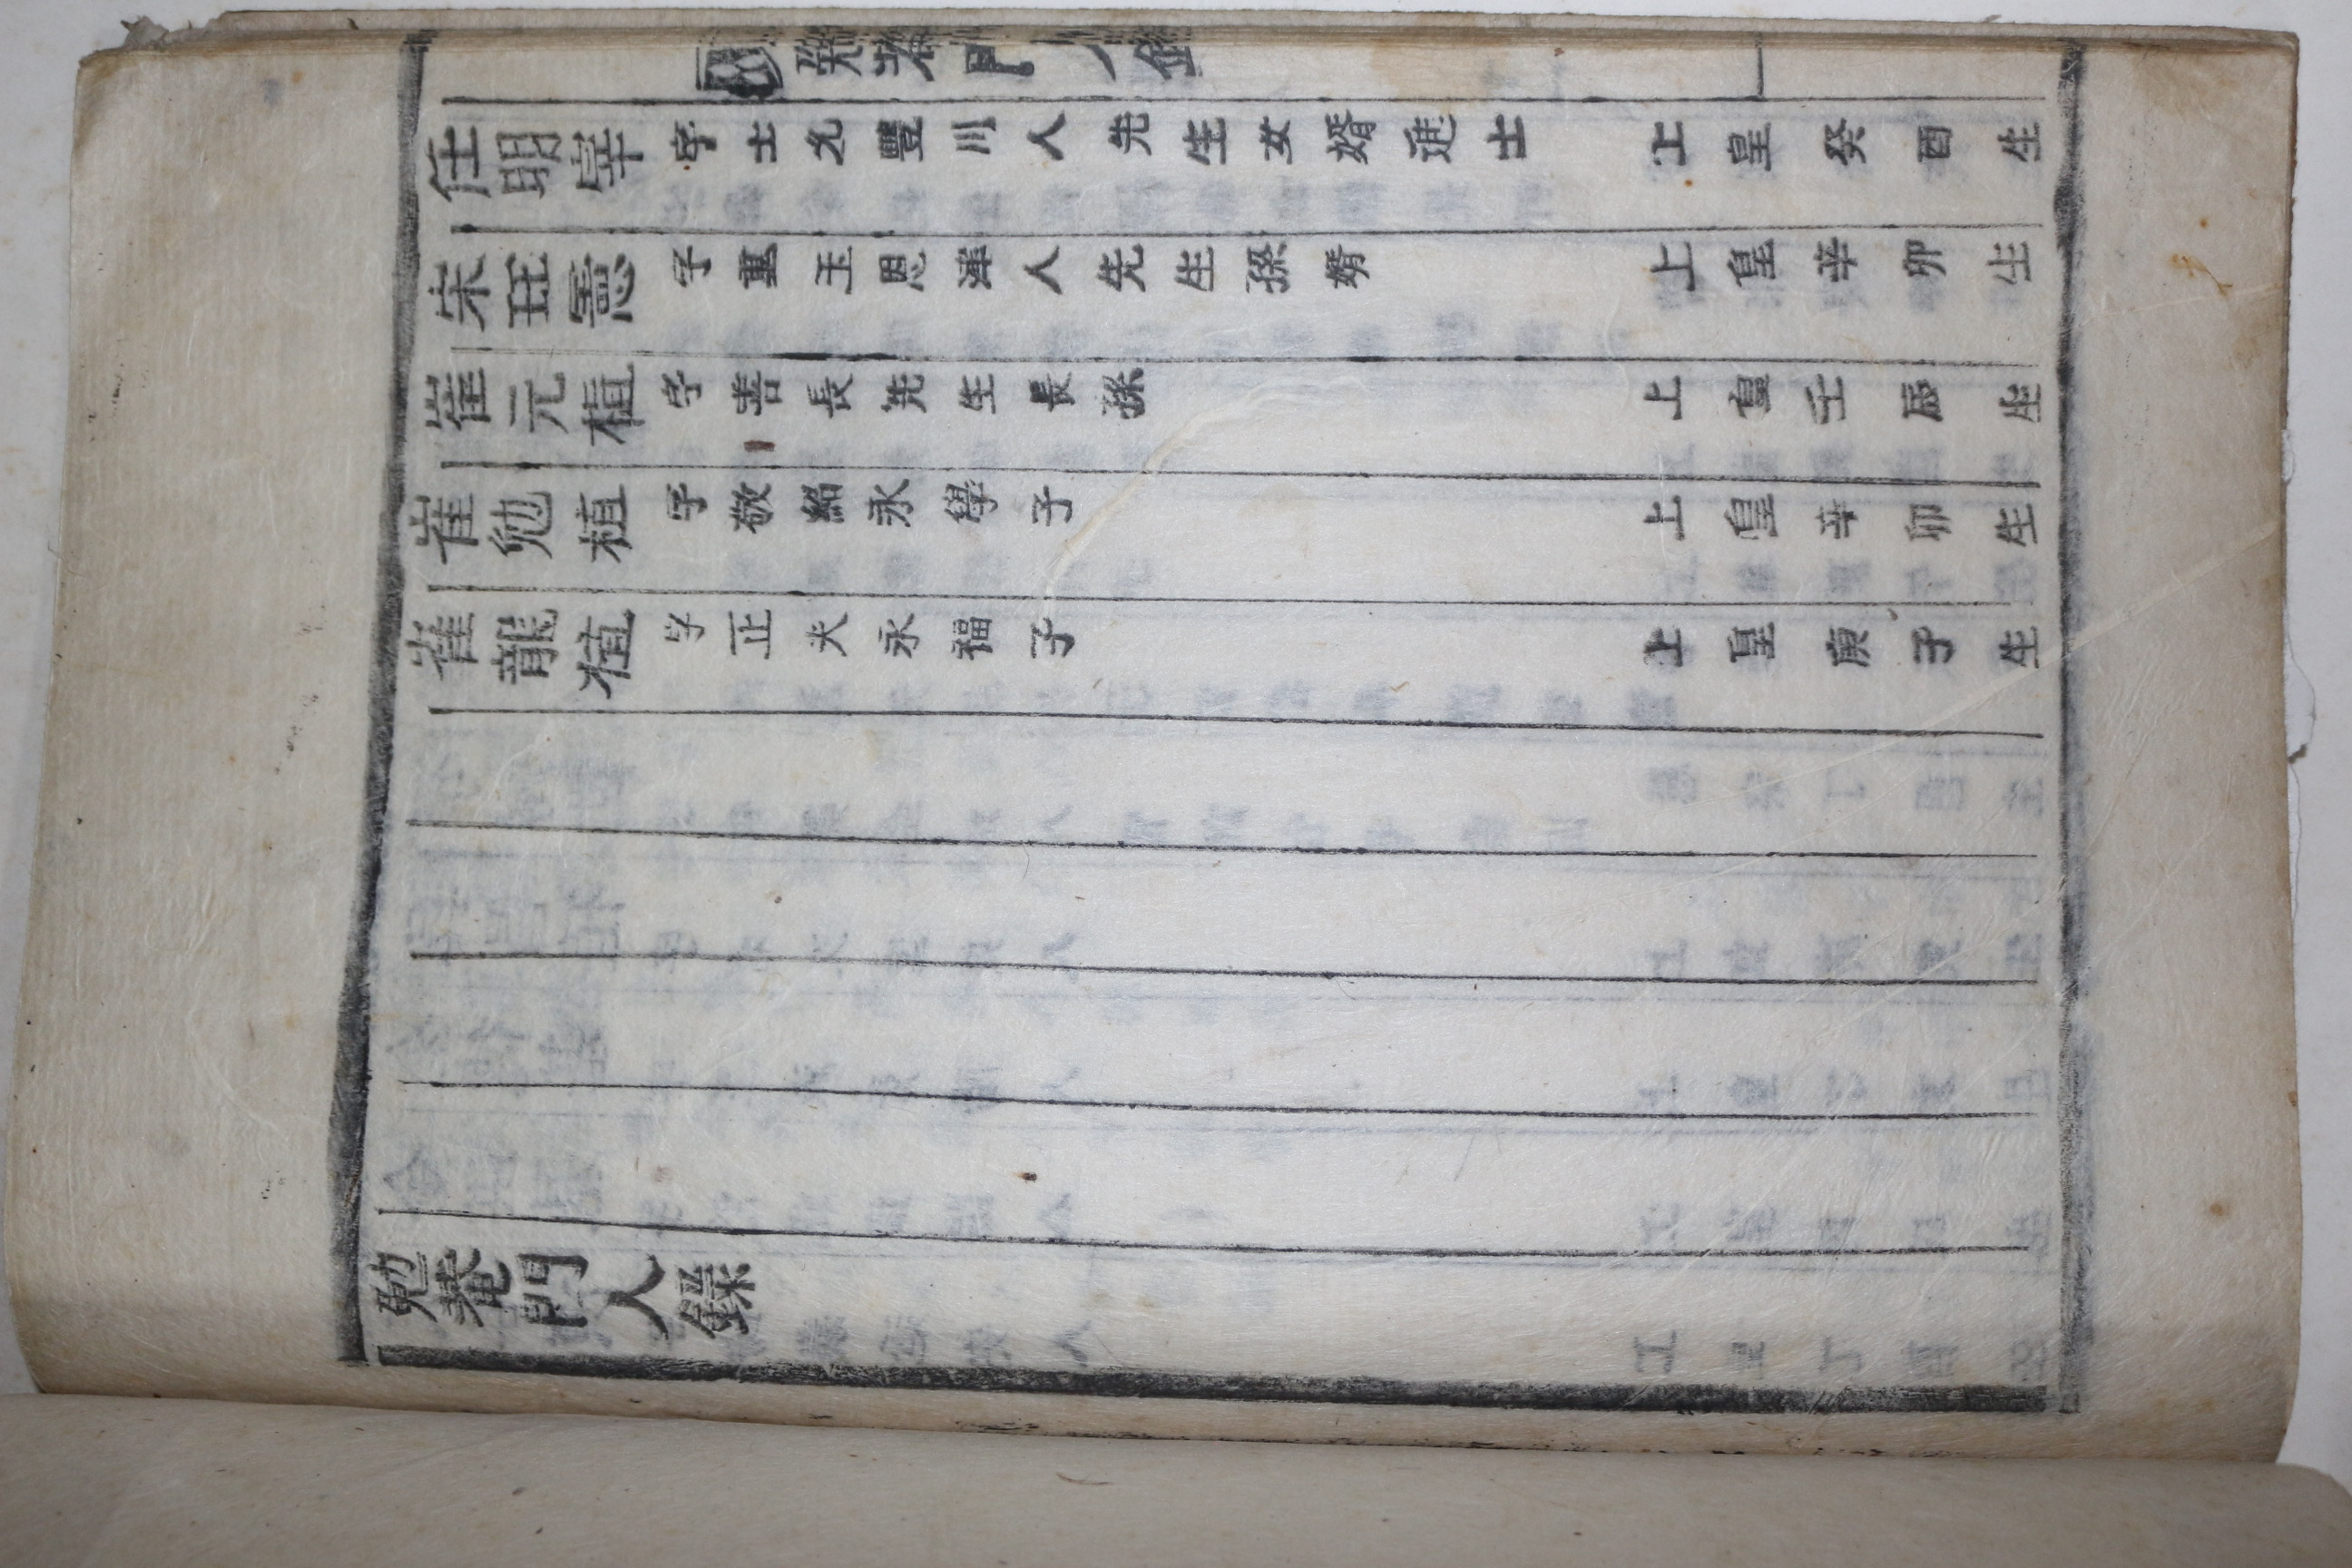 勉菴門人錄
任明宰 字士九豐川人先生女婿進士 上皇癸酉生
宋珏憲 字重玉恩津人先生孫婿 上皇辛卯生
崔元植 字善長先生長孫 上皇壬辰生
崔勉植 字敬紹永學子 上皇辛卯生
崔龍植 字正夫永福子 上皇庚子生
勉菴門人錄